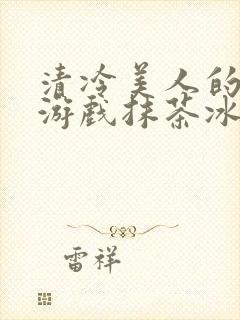 清冷美人的
游戏抹茶冰
雷祥